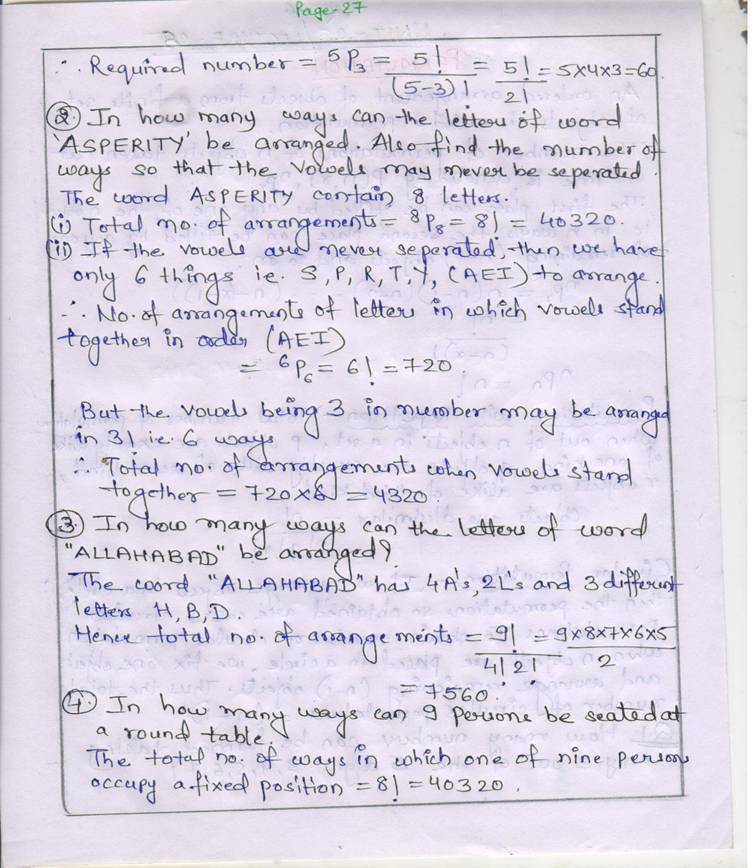 Page-27
∴ Required number = ⁵P₃ = 5!/(5-3)! = 5!/2! = 5×4×3=60.
② In how many ways can the letters of word
'ASPERITY' be arranged. Also find the number of
ways so that the vowels may never be seperated.
The word ASPERITY contain 8 letters.
(i) Total no. of arrangements = ⁸P₈ = 8! = 40320.
(ii) If the vowels are never seperated, then we have
only 6 things ie. S, P, R, T, Y, (AEI) to arrange.
∴ No. of arrangements of letters in which vowels stand
together in order (AEI)
= ⁶P₆ = 6! = 720.
But the vowels being 3 in number may be arranged
in 3! i.e. 6 ways.
∴ Total no. of arrangements when vowels stand
together = 720×6 = 4320.
③ In how many ways can the letters of word
"ALLAHABAD" be arranged?
The word "ALLAHABAD" has 4A's, 2Ls and 3 different
letters H, B, D.
Hence total no. of arrangements = 9!/4!2! = 9×8×7×6×5/2
= 7560.
④ In how many ways can 9 Persons be seated at
a round table.
The total no. of ways in which one of nine persons
occupy a fixed position = 8! = 40320.